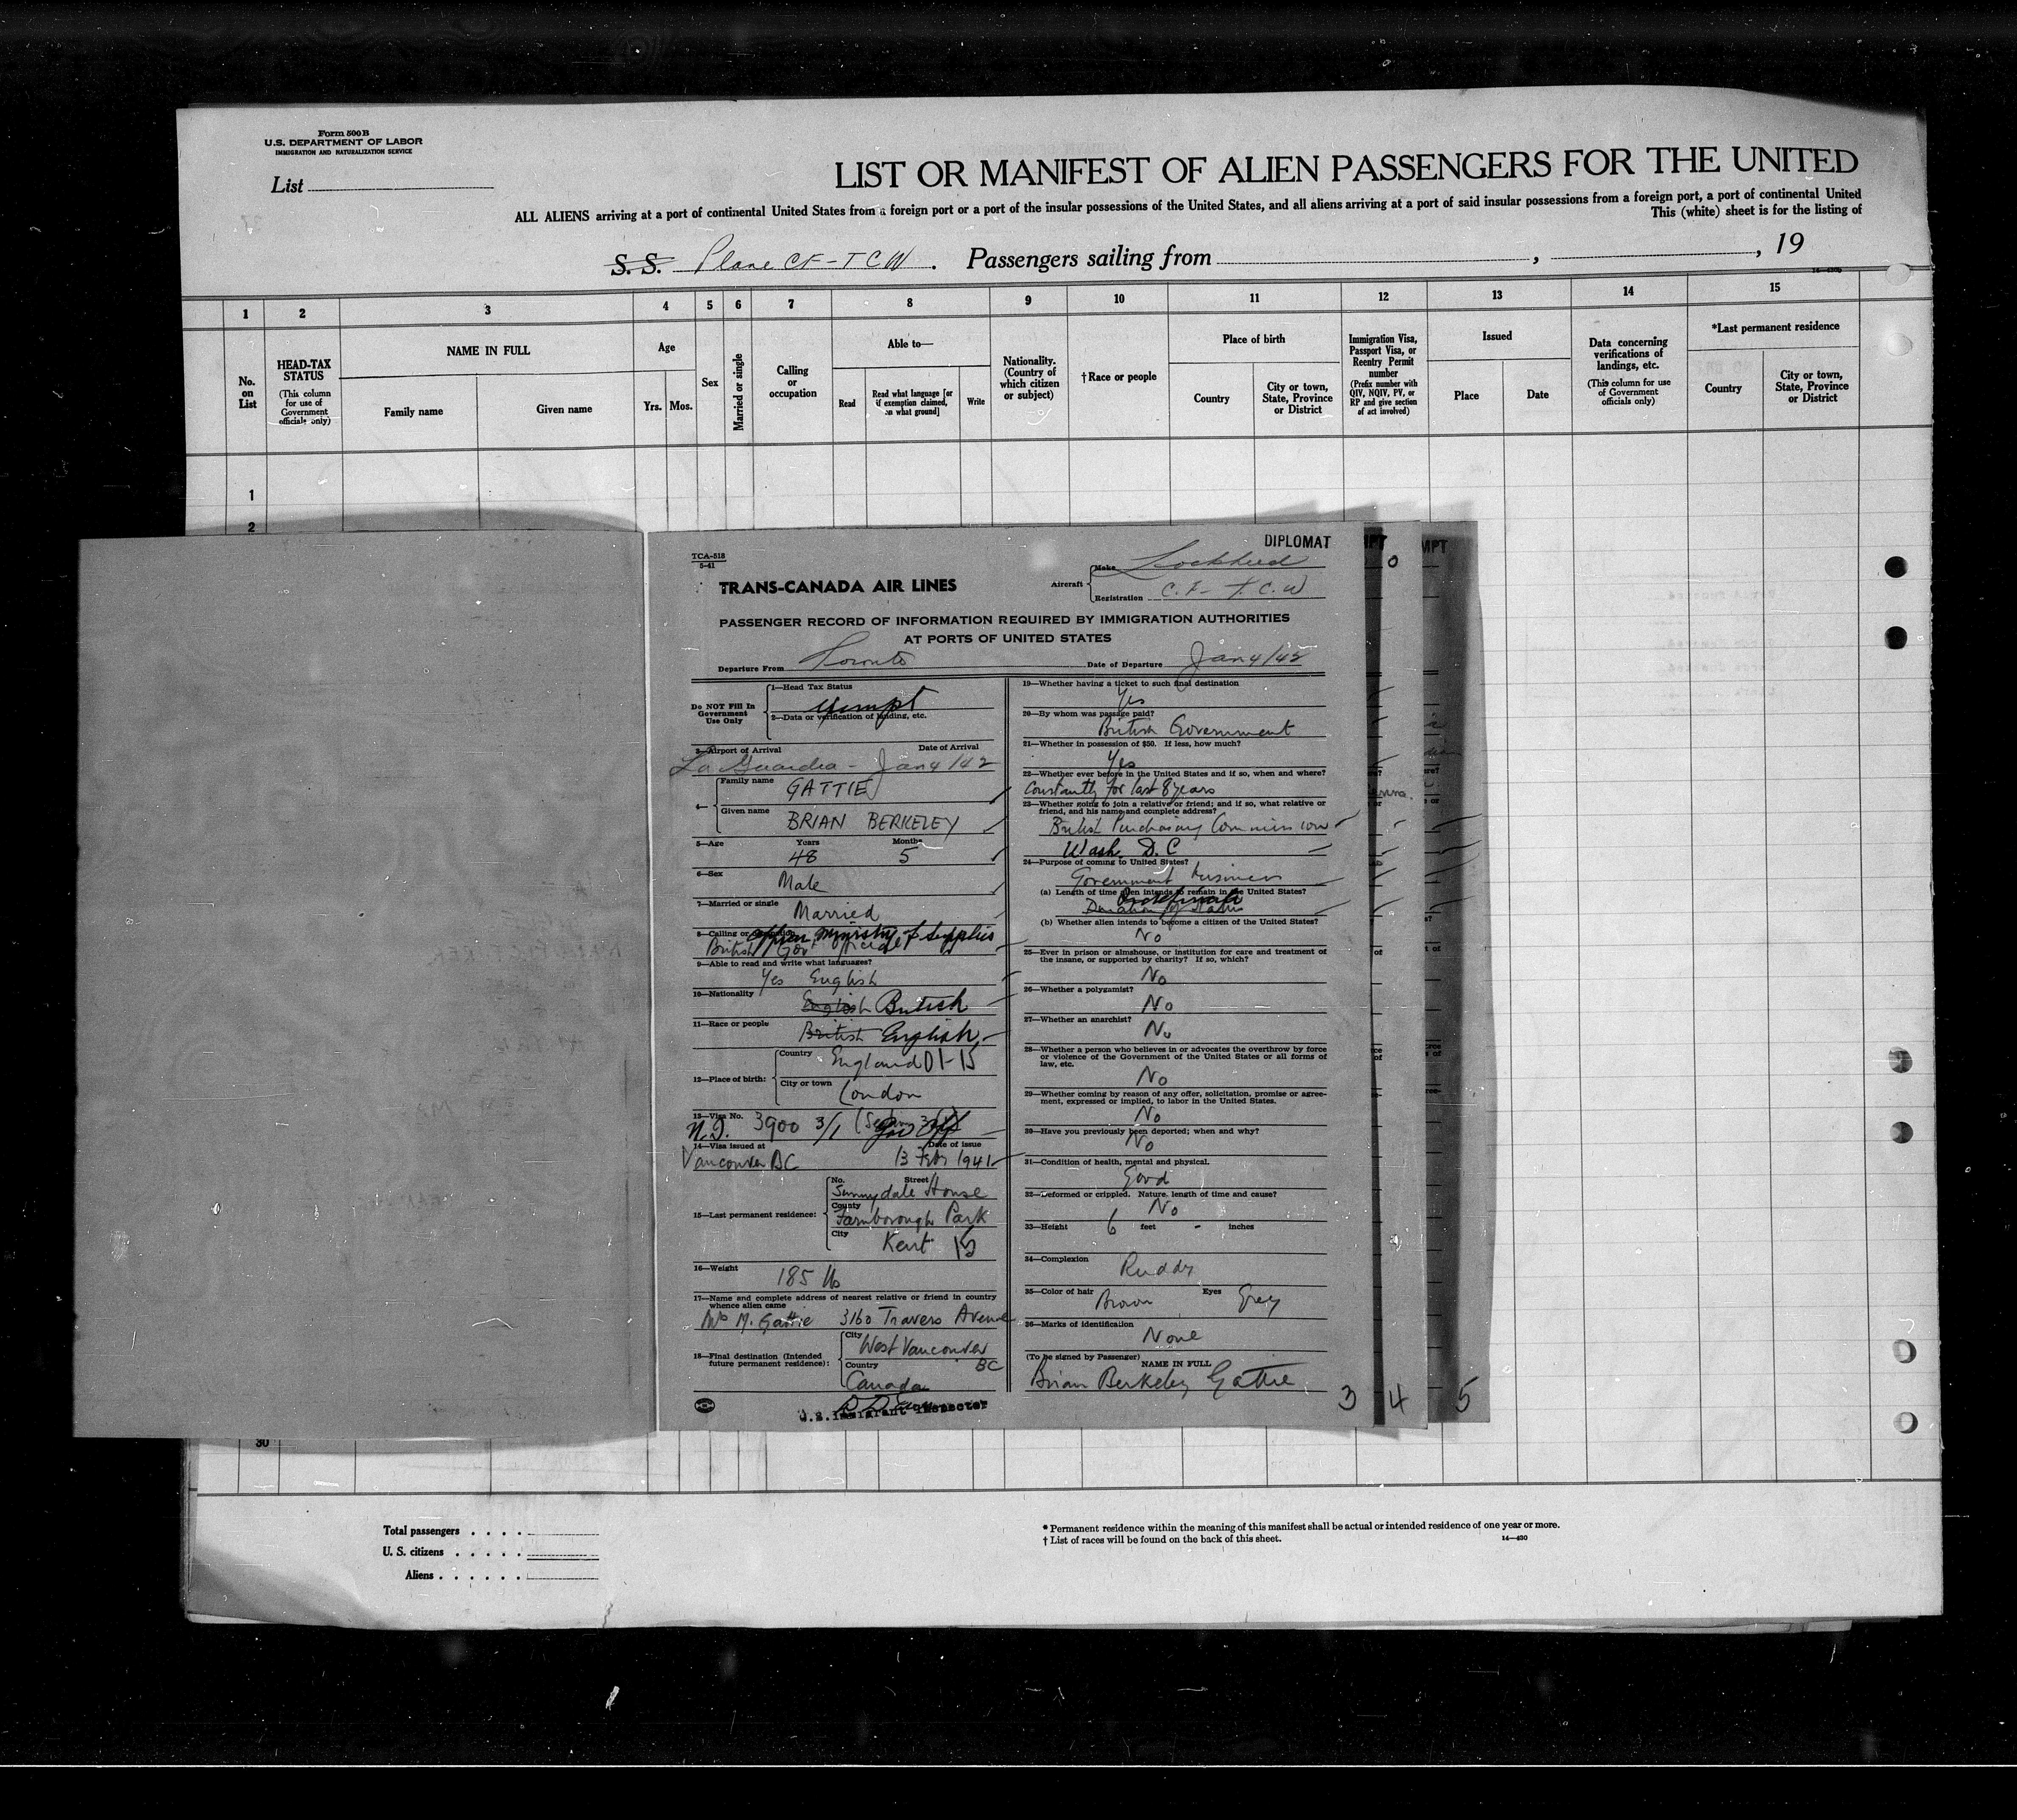 Form 500B
U.S. DEPARTMENT OF LABOR
IMMIGRATION AND NATURALIZATION SERVICE
List
LIST OR MANIFEST OF ALIEN PASSENGERS FOR THE UNITED
ALL ALIENS arriving at a port of continental United States from a foreign port or a port of the insular possessions of the United States, and all aliens arriving at a port of said insular possessions from a foreign port, a port of continental United
This (white) sheet is for the listing of
S. S. Plane CF-TCW . Passengers sailing from , , 19
1 2 3 4 5 6 7 8 9 10 11 12 13 14 15
No. on List
HEAD-TAX STATUS
(This column for use of Government officials only)
NAME IN FULL
Family name
Given name
Age
Yrs. Mos.
Sex
Married or single
Calling or occupation
Able to—
Read
Read what language [or if exemption claimed, on what ground]
Write
Nationality. (Country of which citizen or subject)
† Race or people
Place of birth
Country
City or town, State, Province or District
Immigration Visa, Passport Visa, or Reentry Permit number
(Prefix number with QIV, NQIV, PV, or RP and give section of act involved)
Issued
Place
Date
Data concerning verifications of landings, etc.
(This column for use of Government officials only)
*Last permanent residence
Country
City or town, State, Province or District
1
2
DIPLOMAT
TCA-518
5-41
TRANS-CANADA AIR LINES
Aircraft
Make Lockheed
Registration C.F- T.C.W
PASSENGER RECORD OF INFORMATION REQUIRED BY IMMIGRATION AUTHORITIES
AT PORTS OF UNITED STATES
Departure From Toronto Date of Departure Jan 4/42
Do NOT Fill In Government Use Only
1—Head Tax Status
exempt
2—Data or verification of landing, etc.
3—Airport of Arrival Date of Arrival
La Guardia - Jan 4/42
4—
Family name
GATTIE
Given name
BRIAN BERKELEY
5—Age Years Months
48 5
6—Sex
Male
7—Married or single
Married
8—Calling or occupation
Ministry of Supplies
British Gov official
9—Able to read and write what languages?
Yes English
10—Nationality
English British
11—Race or people
British English
12—Place of birth:
Country
England 01-15
City or town
London
13—Visa No. 3900 3/1
14—Visa issued at Date of issue
Vancouver BC 13 Feb 1941
15—Last permanent residence:
No. Street
Sunnydale House
County
Farnborough Park
City
Kent 15
16—Weight
185 lb
17—Name and complete address of nearest relative or friend in country whence alien came
Mrs M. Gattie 3160 Travers Avenue
18—Final destination (Intended future permanent residence):
City
West Vancouver
Country BC
Canada
U.S. Immigrant Inspector
19—Whether having a ticket to such final destination
Yes
20—By whom was passage paid?
British Government
21—Whether in possession of $50. If less, how much?
Yes
22—Whether ever before in the United States and if so, when and where?
Constantly for last 8 years
23—Whether going to join a relative or friend; and if so, what relative or
friend, and his name and complete address?
British Purchasing Commission
Wash. D.C
24—Purpose of coming to United States?
Government business
(a) Length of time alien intends to remain in the United States?
Indefinite
Duration of Status
(b) Whether alien intends to become a citizen of the United States?
No
25—Ever in prison or almshouse, or institution for care and treatment of
the insane, or supported by charity? If so, which?
No
26—Whether a polygamist?
No
27—Whether an anarchist?
No
28—Whether a person who believes in or advocates the overthrow by force
or violence of the Government of the United States or all forms of
law, etc.
No
29—Whether coming by reason of any offer, solicitation, promise or agree-
ment, expressed or implied, to labor in the United States.
No
30—Have you previously been deported; when and why?
No
31—Condition of health, mental and physical.
Good
32—Deformed or crippled. Nature, length of time and cause?
No
33—Height 6 feet - inches
34—Complexion
Ruddy
35—Color of hair Eyes
Brown Grey
36—Marks of identification
None
(To be signed by Passenger) NAME IN FULL
Brian Berkeley Gattie
3 4 5
30
Total passengers . . . .
U. S. citizens . . . . .
Aliens . . . . . .
* Permanent residence within the meaning of this manifest shall be actual or intended residence of one year or more.
† List of races will be found on the back of this sheet.
14—430